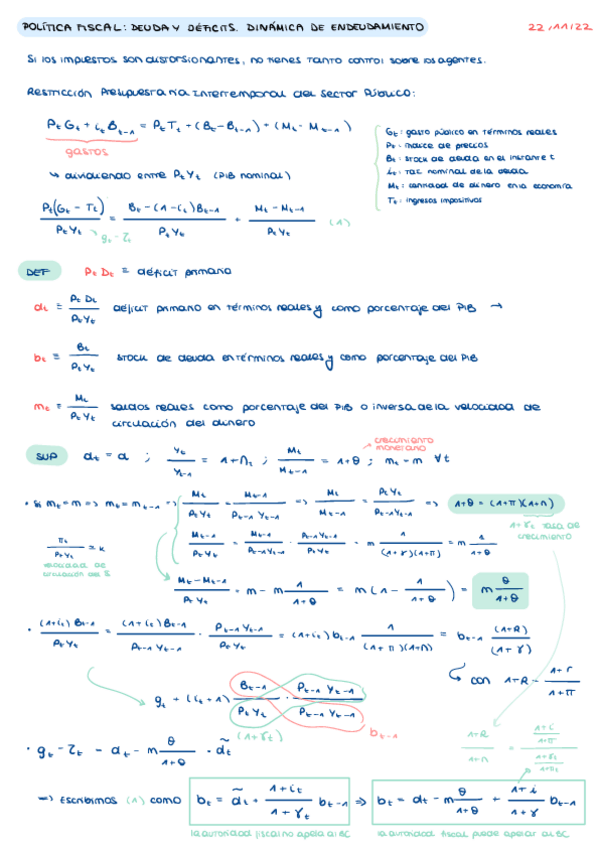 POLÍTICA FISCAL: DEUDA Y DÉFICITS. DINÁMICA DE ENDEUDAMIENTO 22/11/22
Si los impuestos son distorsionantes, no tienes tanto control sobre los agentes.
Restricción Presupuestaria Intertemporal del Sector Público:
P_t G_t + i_t B_{t-1} = P_t T_t + (B_t - B_{t-1}) + (M_t - M_{t-1})
gastos
G_t: gasto público en términos reales
P_t: índice de precios
B_t: stock de deuda en el instante t
i_t: tac nominal de la deuda
M_t: cantidad de dinero en la economía
T_t: ingresos impositivos
↳ dividiendo entre P_t Y_t (PIB nominal)
P_t(G_t - T_t) / P_t Y_t = B_t - (1 - i_t) B_{t-1} / P_t Y_t + M_t - M_{t-1} / P_t Y_t (1)
g_t - τ_t
DEF P_t D_t = déficit primario
d_t = P_t D_t / P_t Y_t déficit primario en términos reales y como porcentaje del PIB →
b_t = B_t / P_t Y_t stock de deuda en términos reales y como porcentaje del PIB
m_t = M_t / P_t Y_t saldos reales como porcentaje del PIB o inversa de la velocidad de
circulación del dinero
crecimiento
monetario
SUP d_t = d ; Y_t / Y_{t-1} = 1+n_t ; M_t / M_{t-1} = 1+θ ; m_t = m ∀t
• Si m_t = m => m_t = m_{t-1} => M_t / P_t Y_t = M_{t-1} / P_{t-1} Y_{t-1} => M_t / M_{t-1} = P_t Y_t / P_{t-1} Y_{t-1} => 1+θ = (1+π)(1+n)
1+γ tasa de
crecimiento
M_{t-1} / P_t Y_t = M_{t-1} / P_{t-1} Y_{t-1} · P_{t-1} Y_{t-1} / P_t Y_t = m 1 / (1+γ)(1+π) = m 1 / 1+θ
/ P_t Y_t = k
velocidad de
circulación del $
M_t - M_{t-1} / P_t Y_t = m - m 1 / 1+θ = m (1 - 1 / 1+θ) = m θ / 1+θ
• (1+i_t) B_{t-1} / P_t Y_t = (1+i_t) B_{t-1} / P_{t-1} Y_{t-1} · P_{t-1} Y_{t-1} / P_t Y_t = (1+i_t) b_{t-1} 1 / (1+π)(1+n) = b_{t-1} (1+R) / (1+γ)
↳ con 1+R = 1+r / 1+π
g_t + (i_t + 1) B_{t-1} / P_t Y_t · P_{t-1} Y_{t-1} / P_{t-1} Y_{t-1}
(1+γ_t) b_{t-1}
1+R / 1+n = 1+i / 1+π / 1+γ_t / 1+π_t
• g_t - τ_t = d_t - m θ / 1+θ = d̃_t
=> Escribimos (1) como b_t = d̃_t + 1+i_t / 1+γ_t b_{t-1} => b_t = d_t - m θ / 1+θ + 1+i / 1+γ b_{t-1}
la autoridad fiscal no apela al BC la autoridad fiscal puede apelar al BC